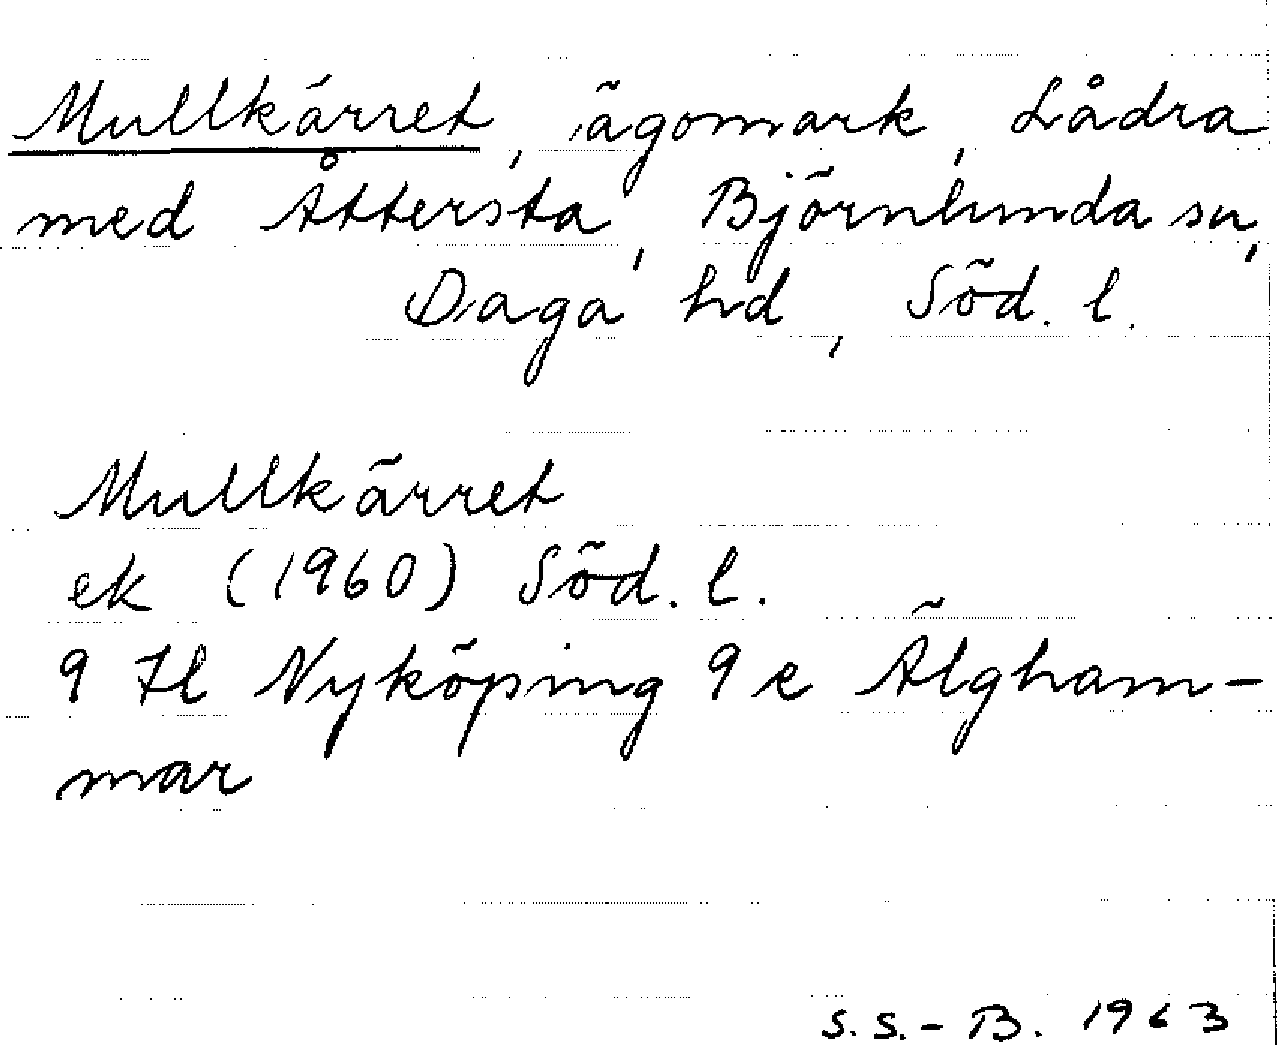 Mullkärret, ägomark, Lådra
med Åttersta, Björnlunda sn,
Daga hd, Söd. l.
Mullkärret
ek (1960) Söd. l.
9 Il Nyköping 9 e Älgham-
mar
S.S.-B. 1963